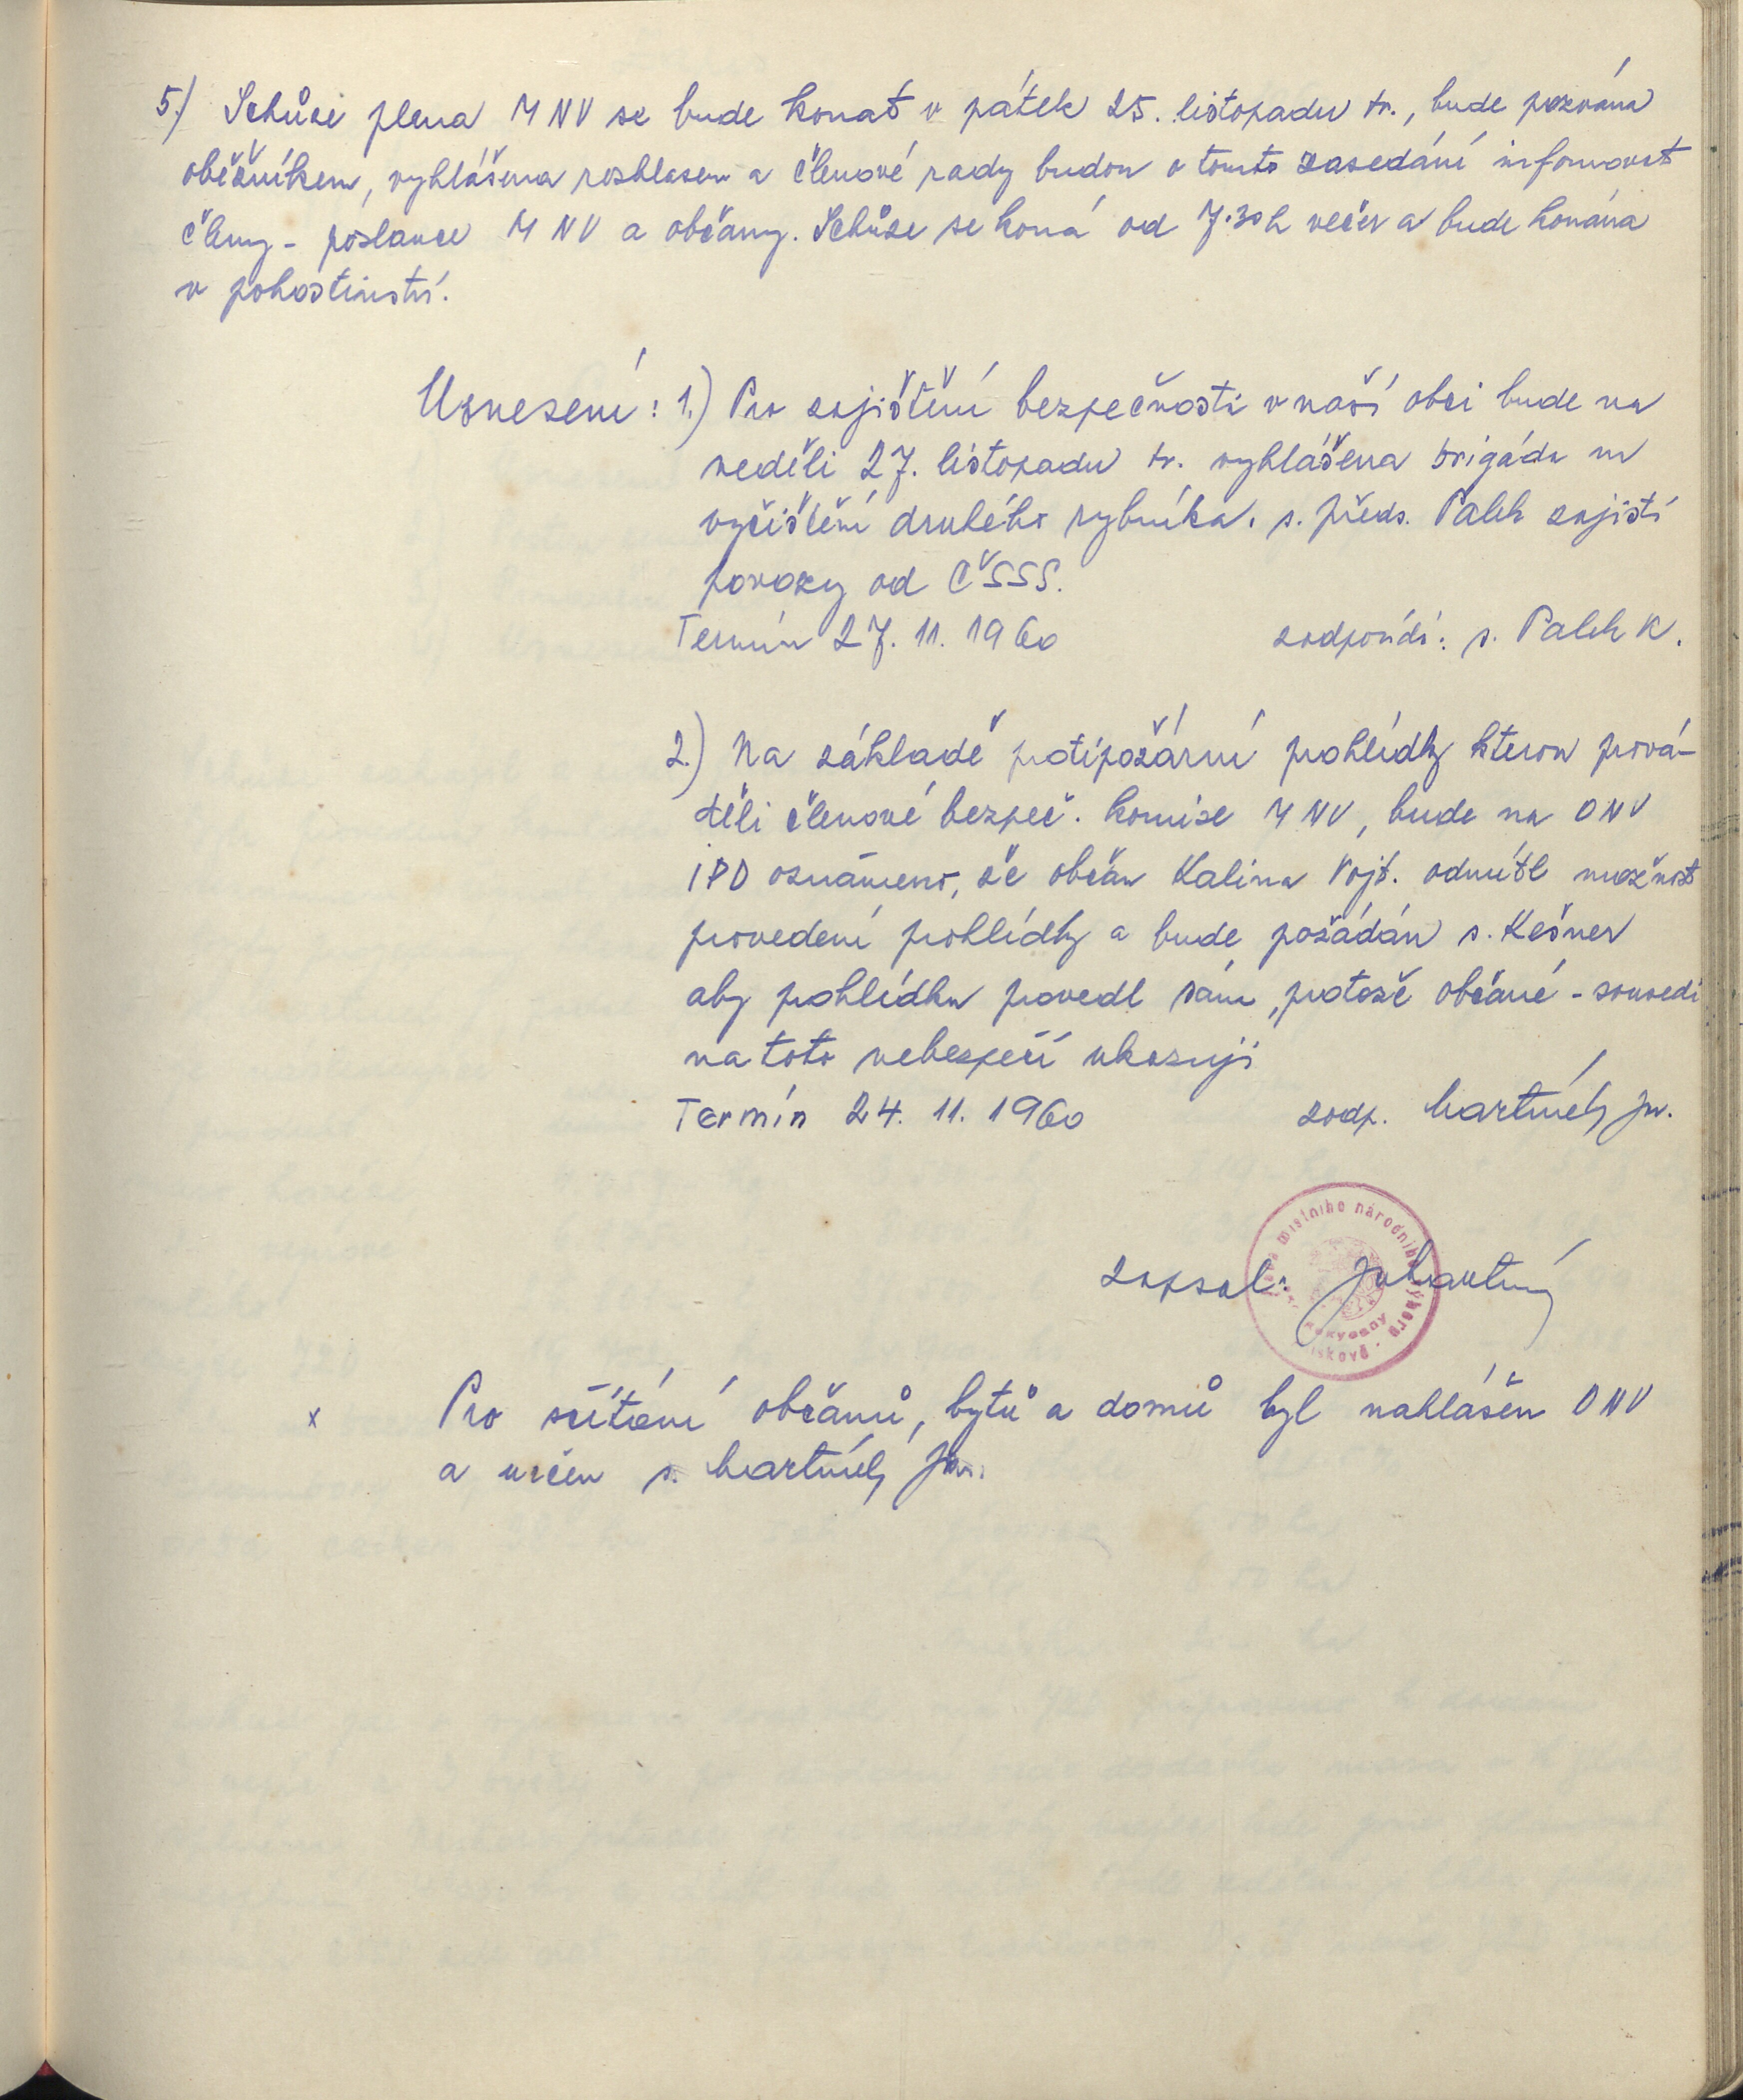 5.) Schůze plena MNV se bude konat v pátek 25. listopadu tr., bude pozvána
oběžníkem, vyhlášena rozhlasem a členové rady budou o tomto zasedání informovat
členy - poslance MNV a občany. Schůze se koná od 7.30 h večer a bude konána
v pohostinství.
Usnesení: 1.) Pro zajištění bezpečnosti v naší obci bude na
neděli 27. listopadu tr. vyhlášena brigáda na
vyčištění druhého rybníka. s. předs. Palek zajistí
povozy od ČSSS.
Termín 27. 11. 1960 zodpovídá: s. Palek K.
2.) Na základě protipožární prohlídky kterou prová-
děli členové bezpeč. komise MNV, bude na ONV
IPO oznámeno, že občan Kalina Vojt. odmítl možnost
provedení prohlídky a bude požádán s. Kešner
aby prohlídku provedl sám, protože občané - sousedi
na toto nebezpečí ukazují
Termín 24. 11. 1960 zodp.
místního národního výboru
zapsal:
x Pro sčítání občanů, bytů a domů byl nahlášen ONV
a určen s.